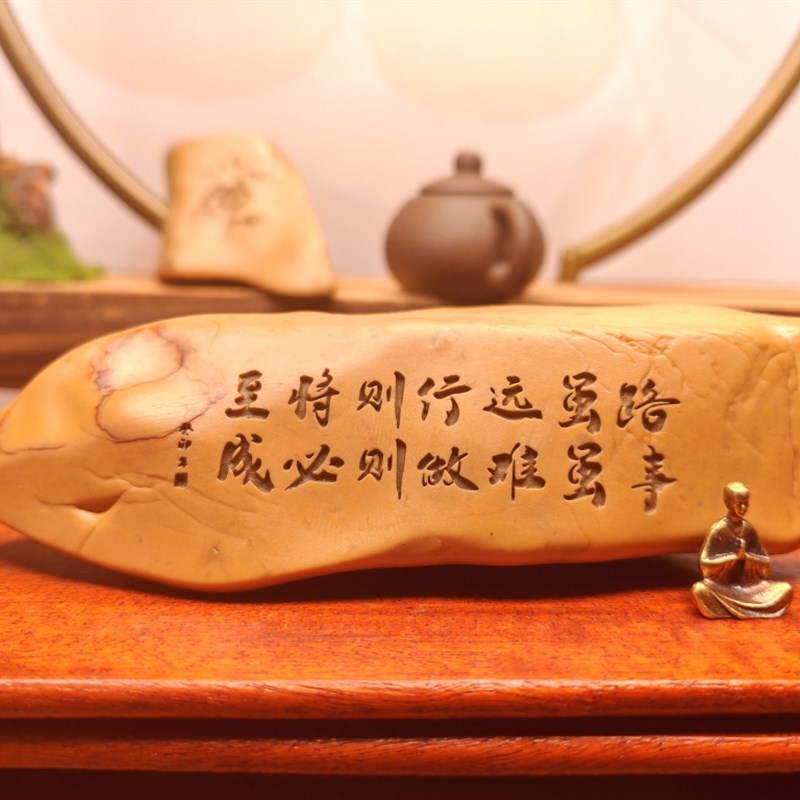 路虽远行则将至
事虽难做则必成
癸卯年